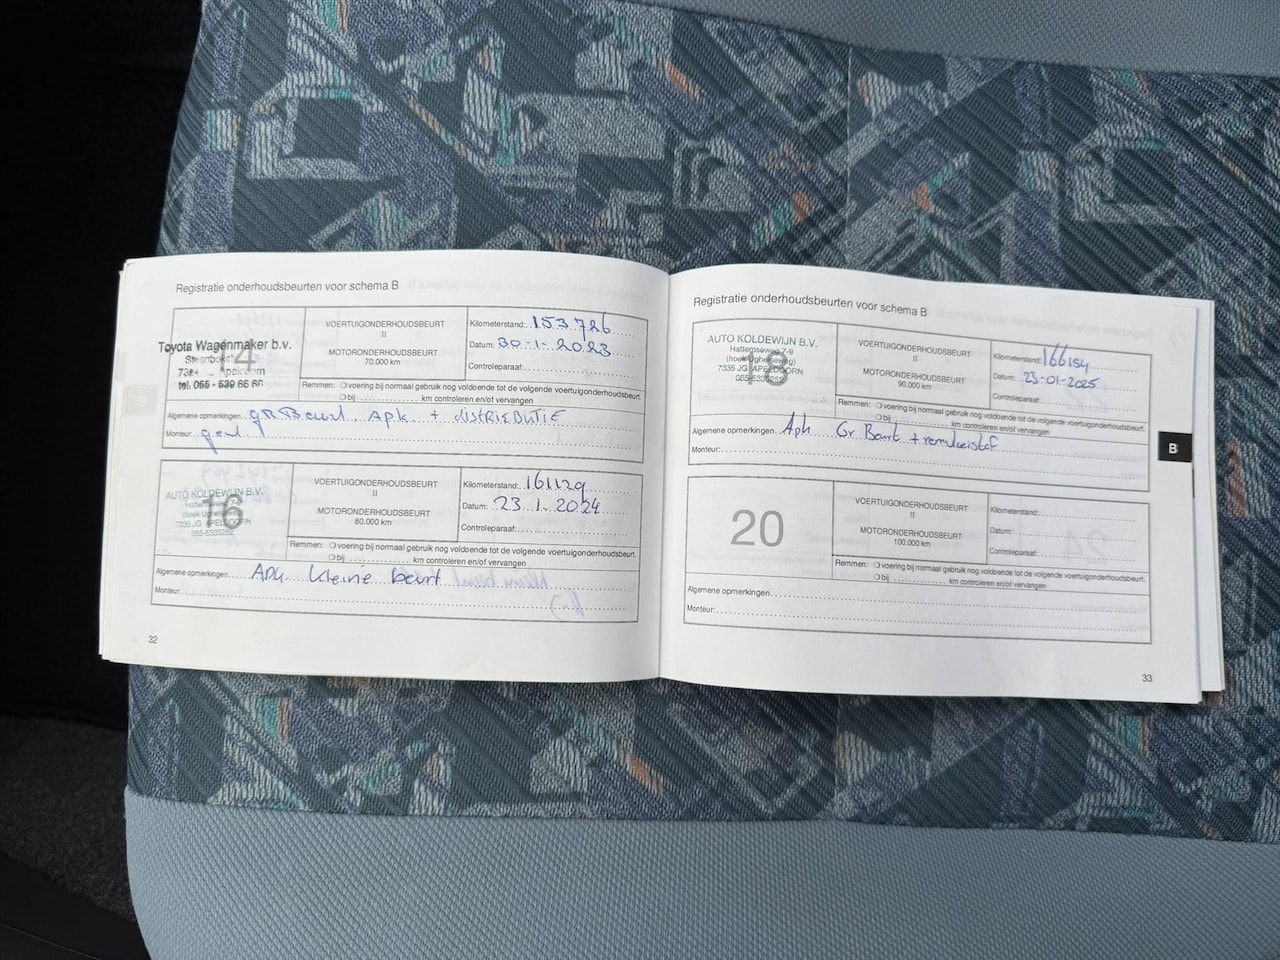 Registratie onderhoudsbeurten voor schema B
14
Toyota Wagenmaker b.v.
tel. 055 - 539 66 66
VOERTUIGONDERHOUDSBEURT
II
MOTORONDERHOUDSBEURT
70.000 km
Kilometerstand: 153726
Datum: 30-1-2023
Controleparaaf:
Remmen: voering bij normaal gebruik nog voldoende tot de volgende voertuigonderhoudsbeurt.
bij km controleren en/of vervangen
Algemene opmerkingen. gR Beurt Apk + distRiBUTiE
Monteur:
16
AUTO KOLDEWIJN B.V.
7335 JG APELDOORN
055-5335252
VOERTUIGONDERHOUDSBEURT
II
MOTORONDERHOUDSBEURT
80.000 km
Kilometerstand: 161129
Datum: 23.1.2024
Controleparaaf:
Remmen: voering bij normaal gebruik nog voldoende tot de volgende voertuigonderhoudsbeurt.
bij km controleren en/of vervangen
Algemene opmerkingen. APK Kleine beurt
Monteur:
32
Registratie onderhoudsbeurten voor schema B
18
AUTO KOLDEWIJN B.V.
7335 JG APELDOORN
055-5335252
VOERTUIGONDERHOUDSBEURT
II
MOTORONDERHOUDSBEURT
90.000 km
Kilometerstand: 166154
Datum: 23-01-2025
Controleparaaf:
Remmen: voering bij normaal gebruik nog voldoende tot de volgende voertuigonderhoudsbeurt.
bij km controleren en/of vervangen
Algemene opmerkingen. Apk Gr. Beurt + remvloeistof
Monteur:
B
20
VOERTUIGONDERHOUDSBEURT
II
MOTORONDERHOUDSBEURT
100.000 km
Kilometerstand:
Datum:
Controleparaaf:
Remmen: voering bij normaal gebruik nog voldoende tot de volgende voertuigonderhoudsbeurt.
bij km controleren en/of vervangen
Algemene opmerkingen.
Monteur:
33